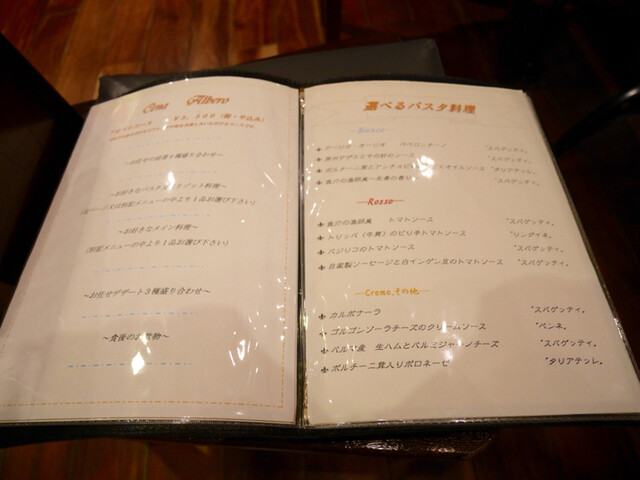 Cena Albero
¥3,500(税・サ込み)
~お任せの前菜3種盛り合わせ~
~お好きなパスタ又はリゾット料理~
(右ページ又は別記メニューの中より1品お選び下さい)
~お好きなメイン料理~
(別記メニューの中より1品お選び下さい)
~お任せデザート3種盛り合わせ~
~食後のお飲物~
選べるパスタ料理
―Bianco―
アーリオ・オーリオ ペペロンチーノ *スパゲッティ。
*スパゲッティ。
オイルソース *タリアテッレ。
魚介の漁師風~生姜の香り *スパゲッティ。
―Rosso―
魚介の漁師風 トマトソース *スパゲッティ。
トリッパ(牛胃)のピリ辛トマトソース *リングイネ。
バジリコのトマトソース *スパゲッティ。
自家製ソーセージと白インゲン豆のトマトソース *スパゲッティ。
―Crema,その他―
カルボナーラ *スパゲッティ。
ゴルゴンゾーラチーズのクリームソース *ペンネ。
パルマ産 生ハムとパルミジャーノチーズ *スパゲッティ。
ポルチーニ茸入りボロネーゼ *タリアテッレ。